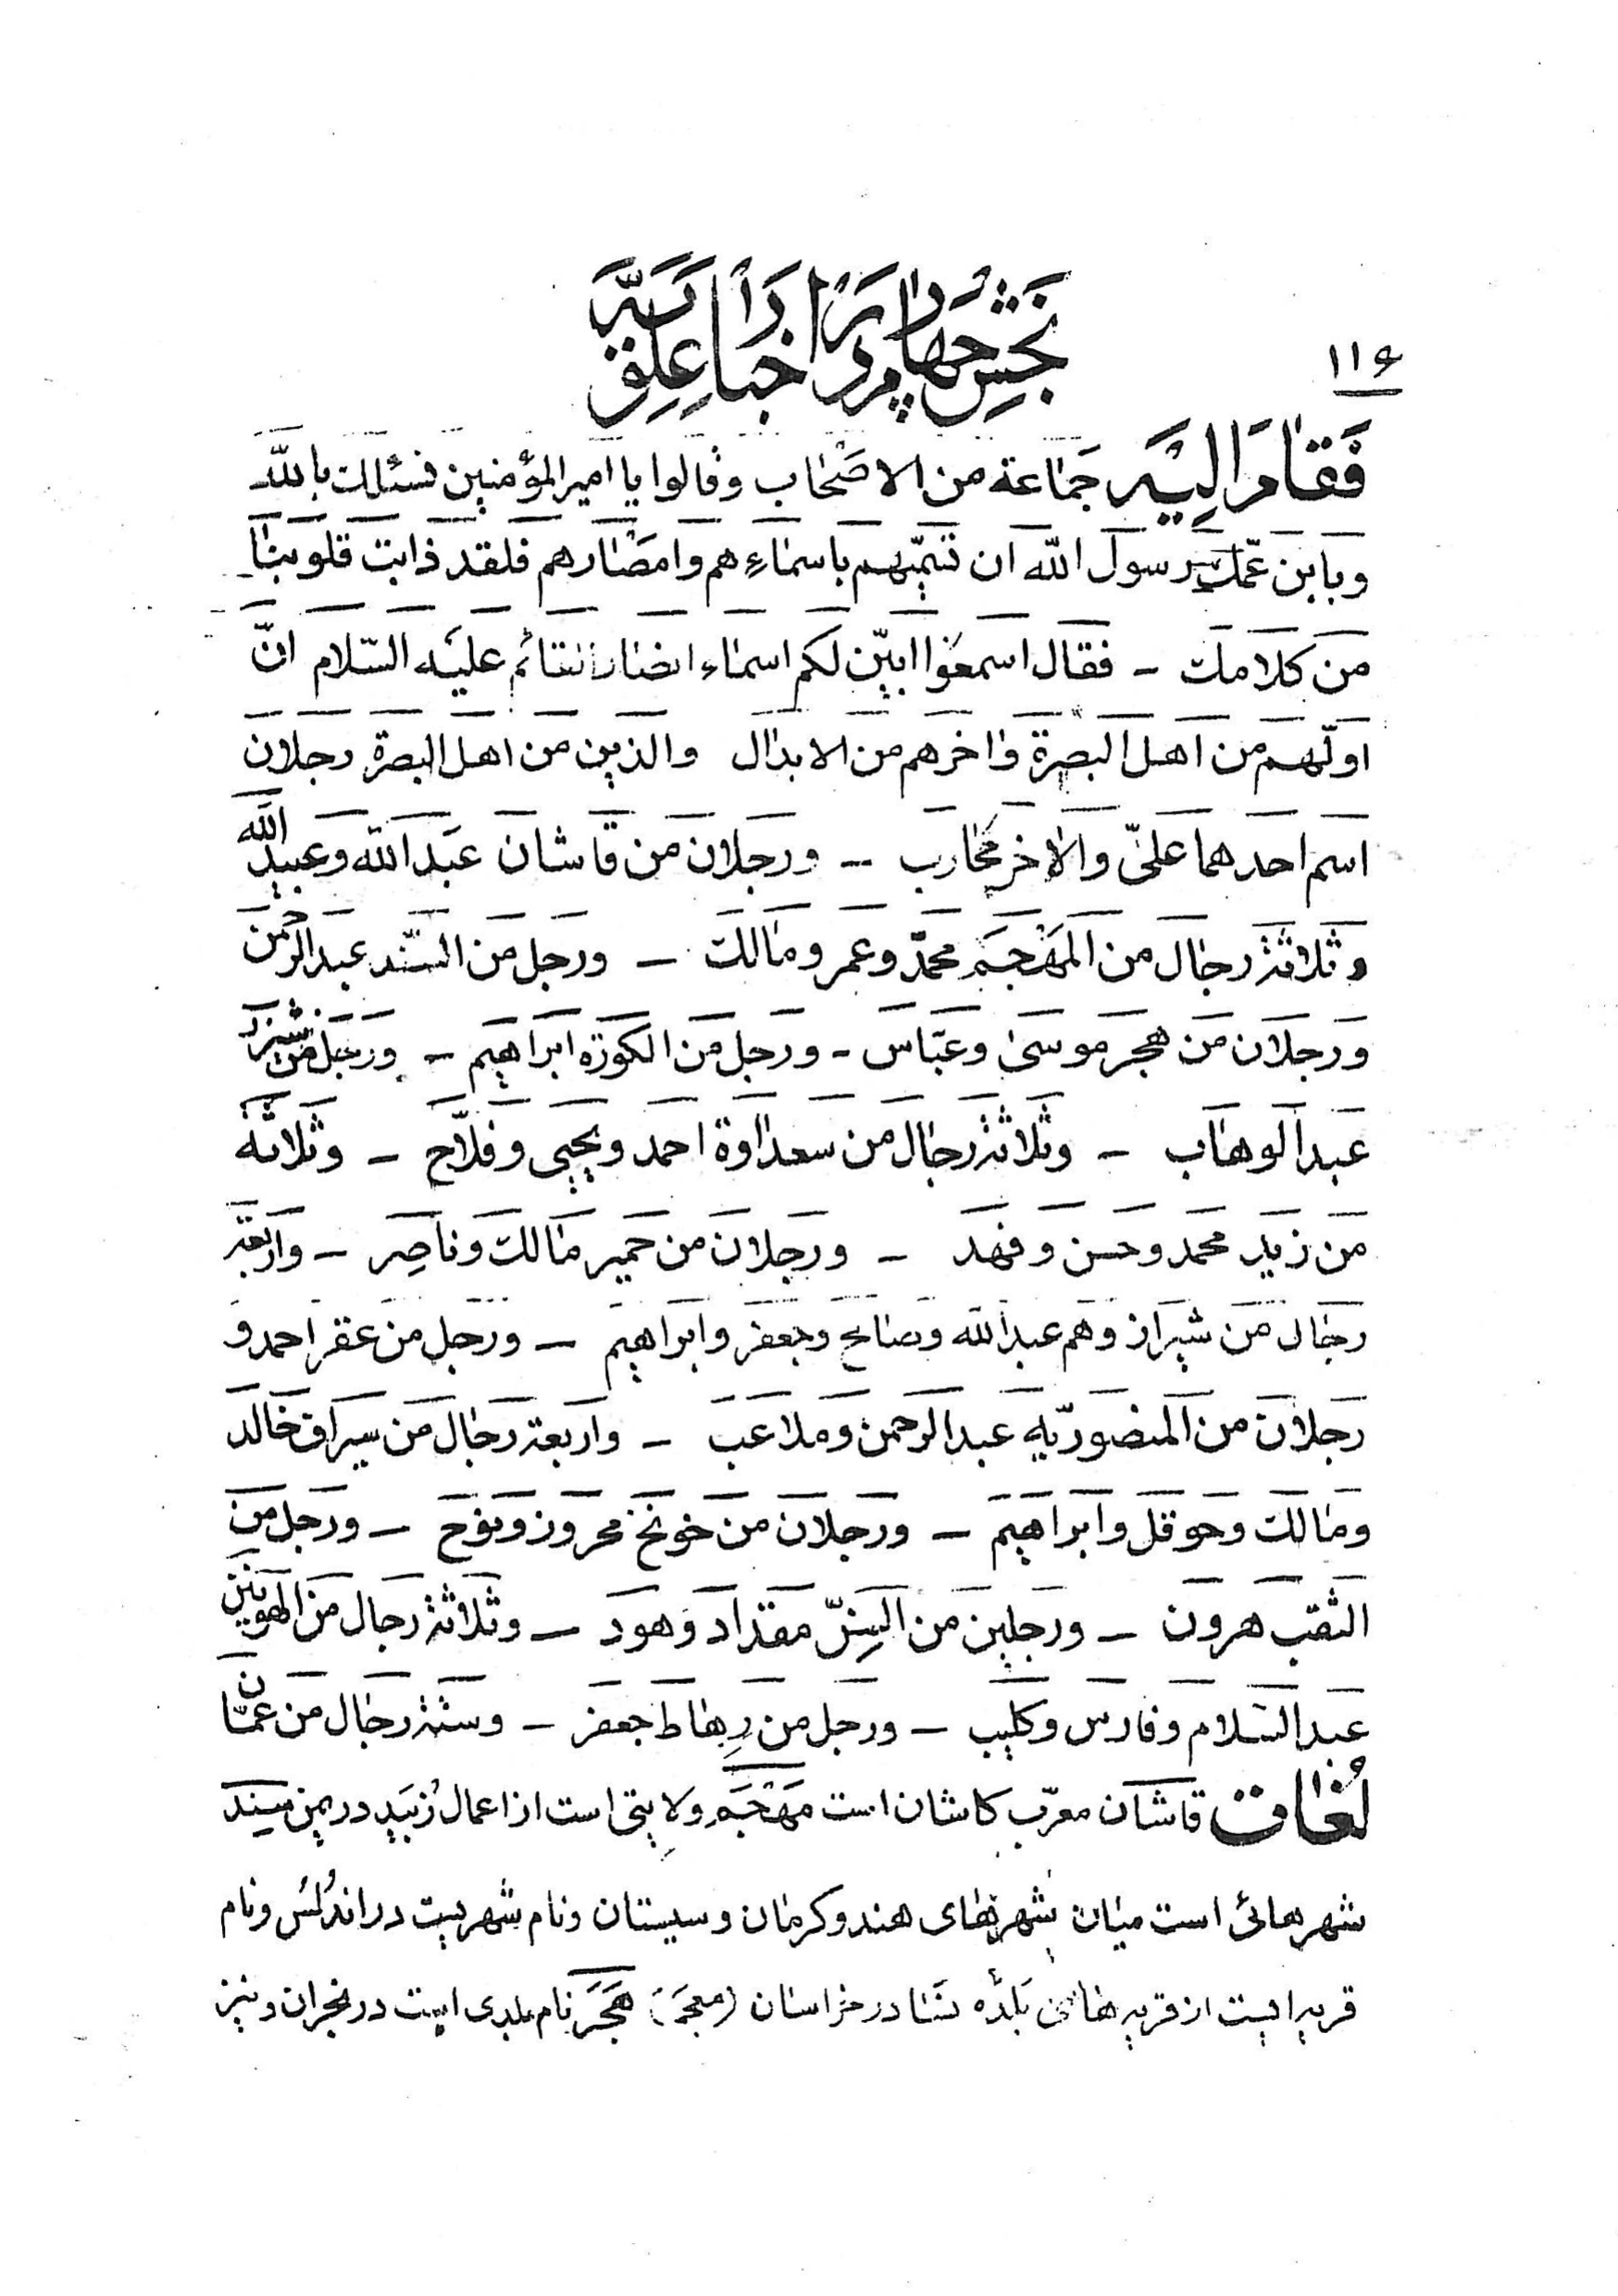 ۱۱۶
بخش چهارم در اخبار علویه
فقام الیه جماعة من الاصحاب وقالوا یا امیرالمؤمنین نسئلك بالله
وبابن عمّك رسول الله ان تسمّیهم باسماءهم وامصارهم فلقد ذابت قلوبنا
من كلامك – فقال اسمعوا ابیّن لكم اسماء انصار القائم علیه السّلام انّ
اوّلهم من اهل البصرة واخرهم من الابدال والذین من اهل البصرة رجلان
اسم احدهما علیّ والاخر محارب – ورجلان من قاشان عبدالله وعبیدالله
وثلاثة رجال من المَهْجَم محمّد وعمر ومالك – ورجل من السّند عبدالرحمن
ورجلان من هجر موسی وعبّاس – ورجل من الكورة ابراهیم – ورجل من شیزر
عبدالوهاب – وثلاثة رجال من سعداوة احمد ویحیی وفلّاح – وثلاثة
من زید محمد وحسن وفهد – ورجلان من حمیر مالك وناصر – واربعة
رجال من شیراز وهم عبدالله وصالح وجعفر وابراهیم – ورجل من عقر احمد و
رجلان من المنصوریّه عبدالرحمن وملاعب – واربعة رجال من سیراف خالد
ومالك وحوقل وابراهیم – ورجلان من خونخ محروز ونوح – ورجل من
الثقب هرون – ورجلین من السِنّ مقداد وهود – وثلاثة رجال من الهونین
عبدالسّلام وفارس وكلیب – ورجل من رِهاط جعفر – وستّة رجال من عمّان
لُغات قاشان معرّب كاشان است مَهْجَم ولایتی است از اعمال زُبَید در یمن سِند
شهرهائی است میان شهرهای هند و كرمان و سیستان و نام شهریست در اندلُس و نام
قریه ایست از قریه های بَلدهٔ نسا در خراسان (معجم) هَجَر نام بلدی است در نجران و نیز